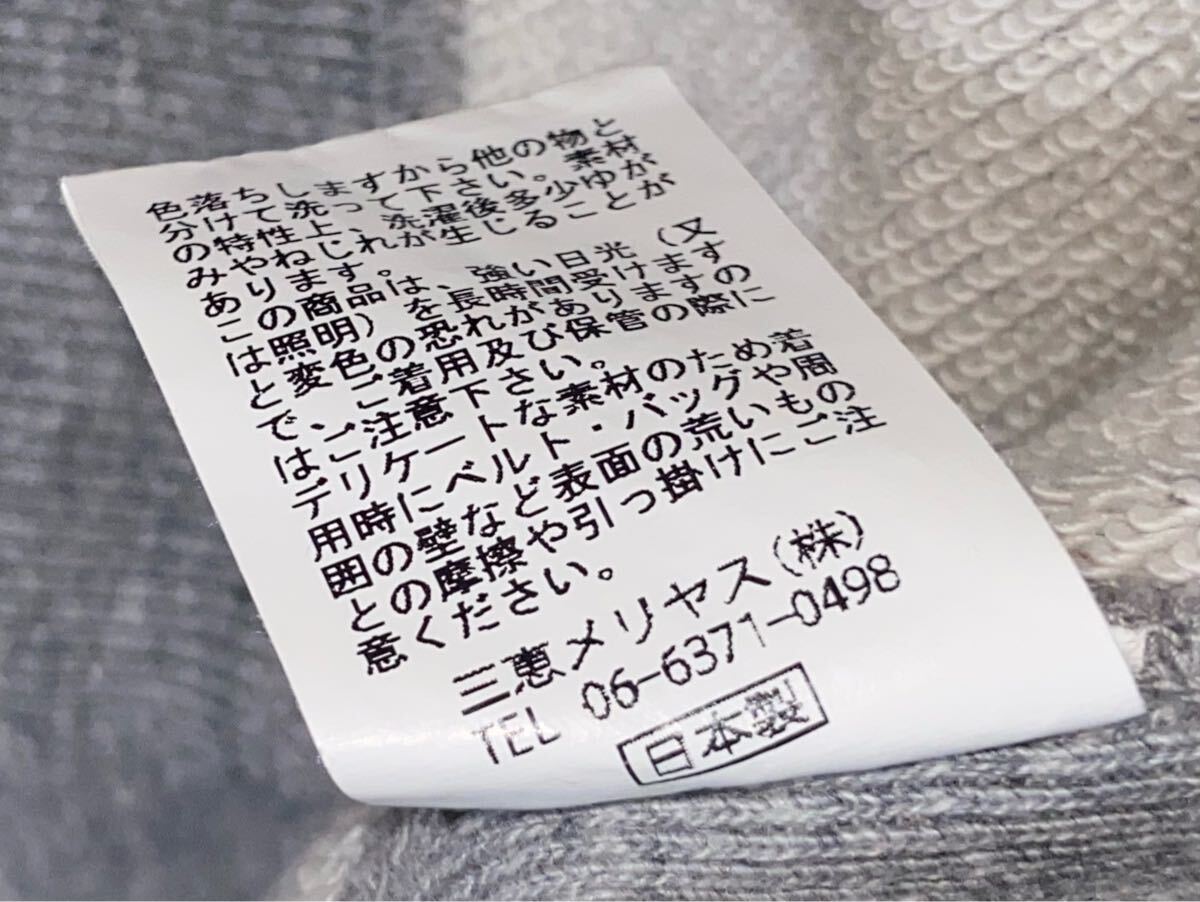 色落ちしますから他の物と
分けて洗って下さい。素材
の特性上、洗濯後多少ゆが
みやねじれが生じることが
あります。
この商品は、強い日光（又
は照明）を長時間受けます
と変色の恐れがありますの
で、ご着用及び保管の際に
はご注意下さい。
デリケートな素材のため着
用時にベルト・バッグや周
囲の壁など表面の荒いもの
との摩擦や引っ掛けにご注
意ください。
三恵メリヤス(株)
TEL 06-6371-0498
日本製